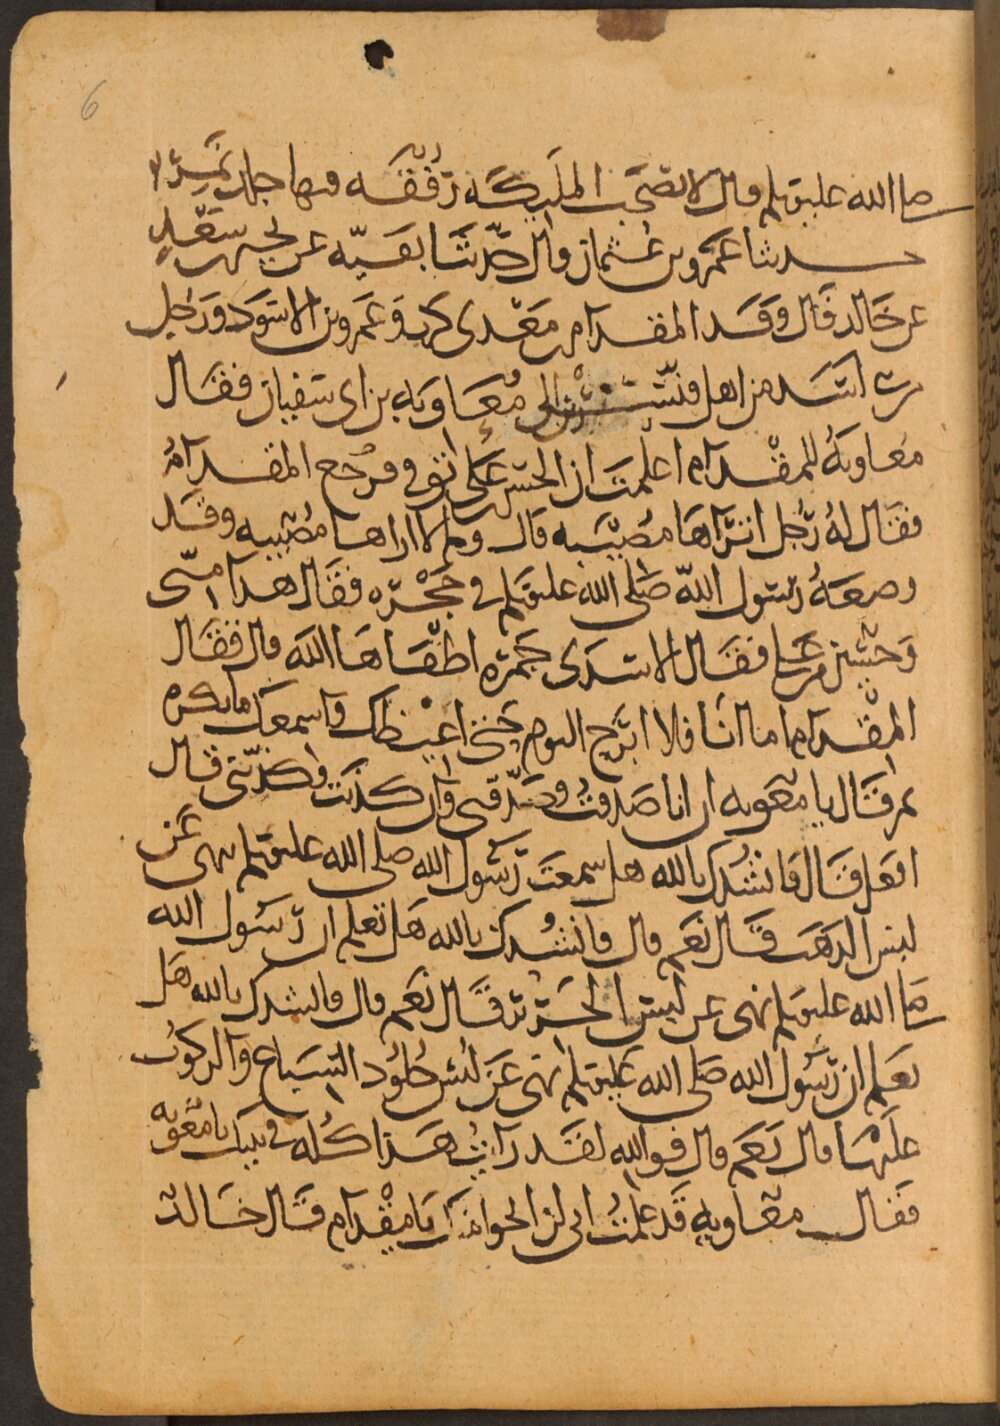 6
صلى الله عليه وسلم قال لا تصحب الملىكه رُفْقَه فيها جلد نَمِر
حدثنا عَمْرو بن عُثمان قال حَدّثنَا بَقيّه عن بَحِير عن سَعْد
عن خَالد قَال وَفَد المقدام بن مَعْدى كرب وَعَمرو بن الاسْوَد وَرَجل
من بنى اسَد من اهل قنّسرين الى مُعَاويَه بن ابى سفيان فقَال
مُعاويَةُ للمقْدام اعلمتَ ان الحسَن بن عَلى تُوفى فرجّع المقدَامُ
فقَال لهُ رَجُل اتَرَاهَا مصيْبَه قال ولم لا اراها مُصِيبه وقَد
وضعَهُ رسُول اللّه صَلى الله عليه وسلم فى حَجْرِه فقال هذا مِنّى
وَحُسَين من عَلى فقَال الاسَدى جَمْرَه اطفَاهَا الله قال فقَال
المقْدام اما انَا فلا ابْرح اليوم حَتى اغيْظك واسمعَك ما تكره
ثم قَال يا معَويه ان انا صَدقتُ فصَدّقنى وان كذبت فكذّبنى قال
افعل قَال فانشُدك بالله هل سمعتَ رسُول الله صلى الله عليه وسلم ينهى عَن
لبس الذهَب قَال نعَم قال فانشُدك بالله هَل تعلم ان رسُول الله
صلى الله عليه وسلم نهى عن لبس الحَرير قَال نعَم قال فانشدك بالله هَل
تعلم ان رسُول الله صَلى الله عَليه وسلم نهَى عَن لبُس جُلوُد السّبَاع والركوُب
عليهَا قال نَعَم قال فوالله لقَد رَايتُ هَذا كُله فى بيتك يا معَويه
فقال معَاويه قَد علمتُ انى لن انجوا منك يَا مِقْدام قَال خَالد